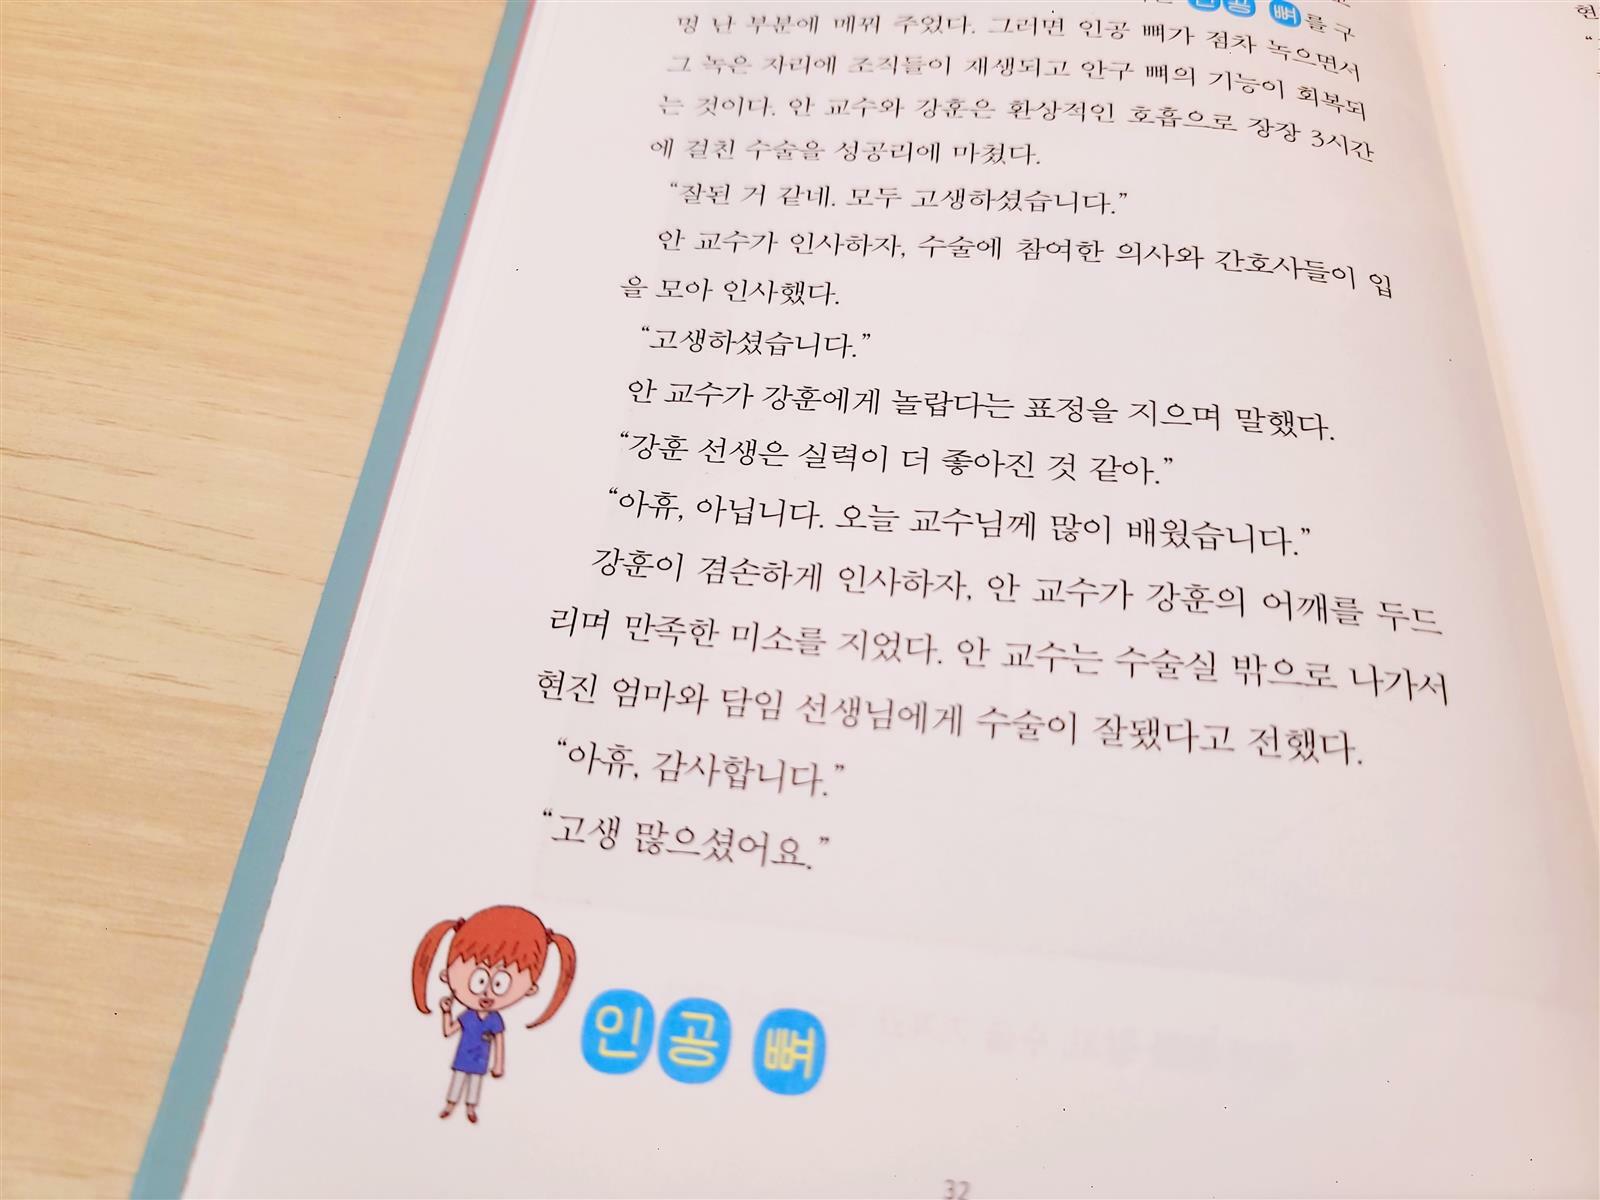 인공 뼈를 구
멍 난 부분에 메꿔 주었다. 그러면 인공 뼈가 점차 녹으면서
그 녹은 자리에 조직들이 재생되고 안구 뼈의 기능이 회복되
는 것이다. 안 교수와 강훈은 환상적인 호흡으로 장장 3시간
에 걸친 수술을 성공리에 마쳤다.
“잘된 거 같네. 모두 고생하셨습니다.”
안 교수가 인사하자, 수술에 참여한 의사와 간호사들이 입
을 모아 인사했다.
“고생하셨습니다.”
안 교수가 강훈에게 놀랍다는 표정을 지으며 말했다.
“강훈 선생은 실력이 더 좋아진 것 같아.”
“아휴, 아닙니다. 오늘 교수님께 많이 배웠습니다.”
강훈이 겸손하게 인사하자, 안 교수가 강훈의 어깨를 두드
리며 만족한 미소를 지었다. 안 교수는 수술실 밖으로 나가서
현진 엄마와 담임 선생님에게 수술이 잘됐다고 전했다.
“아휴, 감사합니다.”
“고생 많으셨어요.”
인공 뼈
32
현